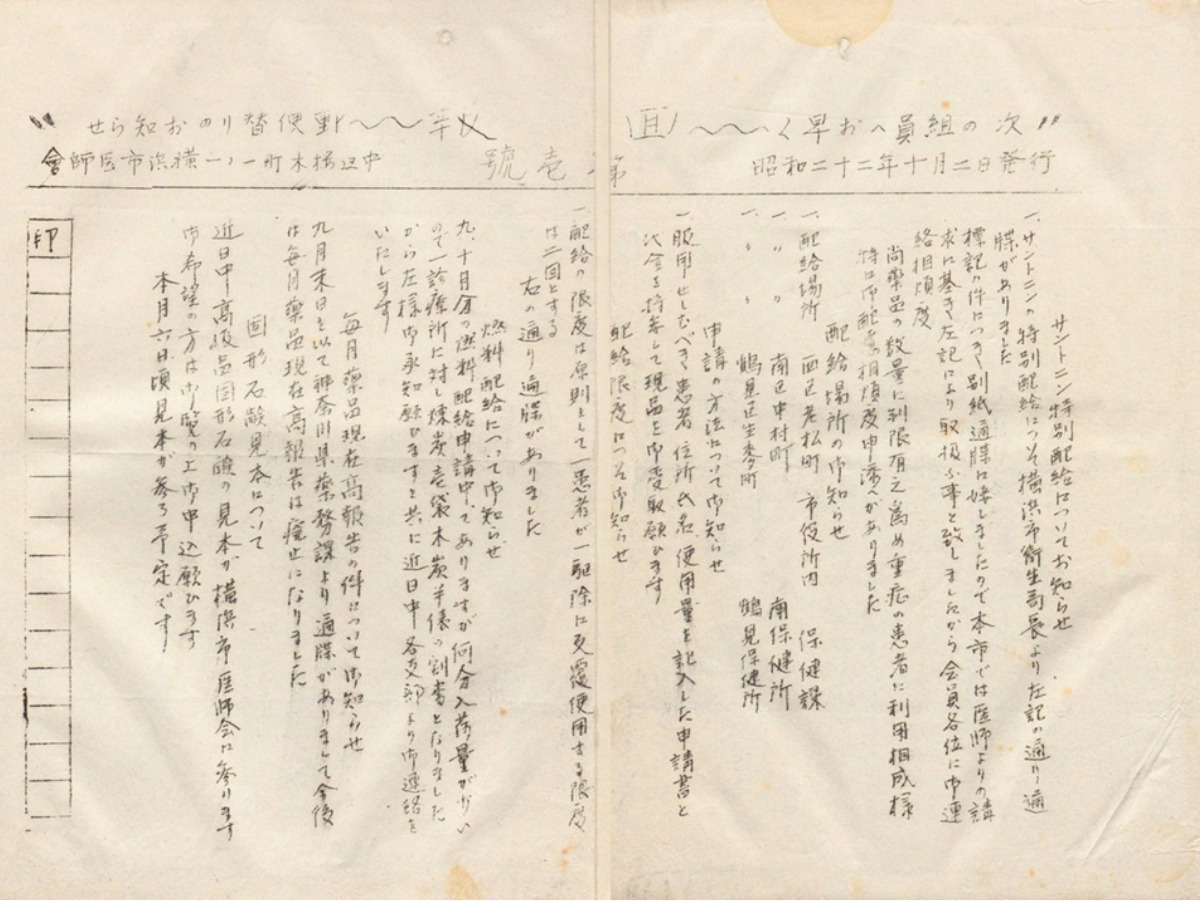 〃次の組員へお早く〜〜〜回
昭和二十二年十月二日発行
第壱號
郵便替りのお知らせ〃
中区桜木町一ノ一横浜市医師會
サントニン特別配給についてお知らせ
一、サントニンの特別配給について横浜市衛生局長より左記の通り通
牒がありました
標記の件につき別紙通牒に接しましたので本市では医師よりの請
求に基き左記により取扱ふ事と致しましたから会員各位に御連
絡相煩度
尚薬品の数量に制限有之為め重症の患者に利用相成様
特に御配慮相煩度申添へがありました
配給場所の御知らせ
一、配給場所 西区老松町 市役所内 保健課
一、〃 南区中村町 南保健所
一、〃 鶴見区生麥町 鶴見保健所
申請の方法について御知らせ
一服用せしむべき患者 住所氏名 使用量を記入した申請書と
代金を持参して現品を御受取願ひます
配給限度について御知らせ
一配給の限度は原則として一患者が一駆除に反覆使用する限度
は二回とする
右の通り通牒がありました
燃料配給について御知らせ
九、十月分の燃料配給申請中でありますが何分入荷量が少い
ので一診療所に対し煉炭壱袋木炭半俵の割当となりました
から左様御承知願ひますと共に近日中各支部より御連絡を
いたします
毎月薬品現在高報告の件について御知らせ
九月末日を以て神奈川県薬務課より通牒がありまして今後
は毎月薬品現在高報告は廃止になりました
固形石鹸見本について
近日中高級品固形石鹸の見本が横浜市医師会に参ります
御希望の方は御覧の上御申込願ひます
本月六日頃見本が参る予定です
印